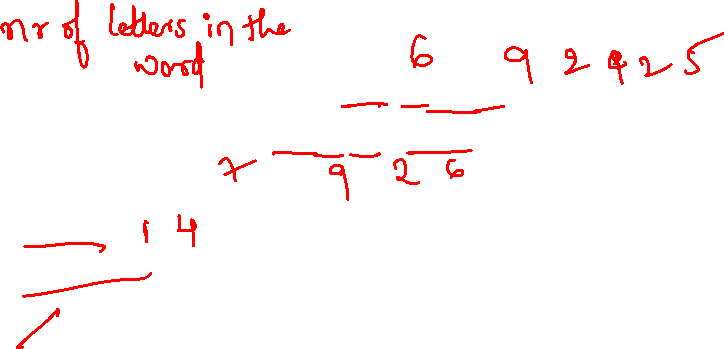 nr of letters in the
word
6 9 2 9 2 5
7 9 2 6
1 4